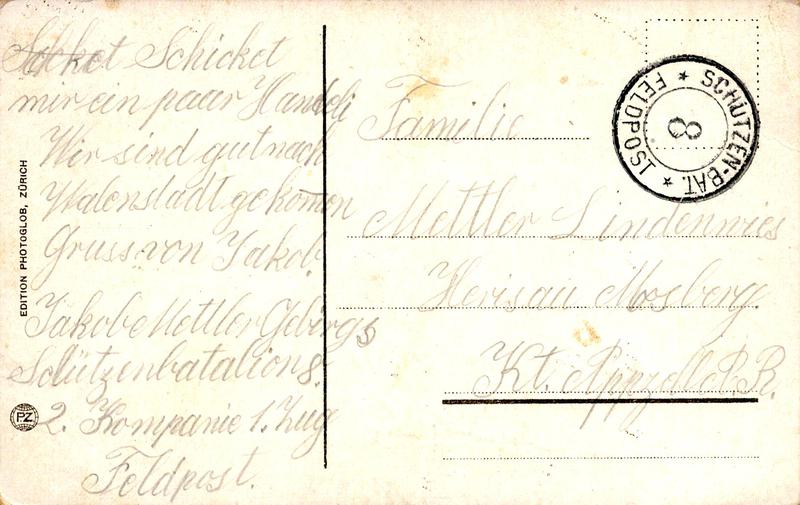 Schicket
mir ein paar Handeli
Wir sind gut nach
Walenstadt gekommen
Gruss von Jakob.
Jakob Mettler Gebirgs
Schützenbatalion 8.
2. Kompanie 1. Zug
Feldpost.
EDITION PHOTOGLOB, ZÜRICH
PZ
SCHÜTZEN-BAT. ★ FELDPOST ★
8
Familie
Mettler Lindenwies
Herisau Mosberg.
Kt. Appzell A. R.